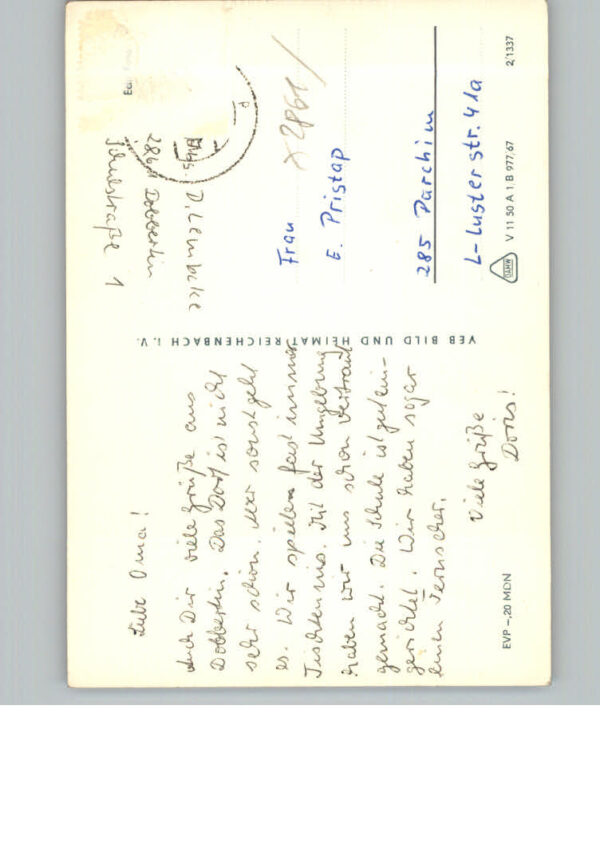 Liebe Oma!
Auch Dir viele Grüße aus
Dobbertin. Das Dorf ist nicht
sehr schön. Aber sonst geht
es. Wir spielen fast immer
Tischtennis. Mit der Umgebung
haben wir uns schon vertraut
gemacht. Die Schule ist gut ein-
gerichtet. Wir haben sogar
einen Fernseher.
Viele Grüße
Doris!
EVP –,20 MDN
VEB BILD UND HEIMAT REICHENBACH i. V.
Abs. D. Lembcke
2861 Dobbertin
Schulstraße 1
x 2861 /
Frau
E. Pristap
285 Parchim
L-Luster str. 41a
V 11 50 A 1, B 977/67
2/1337